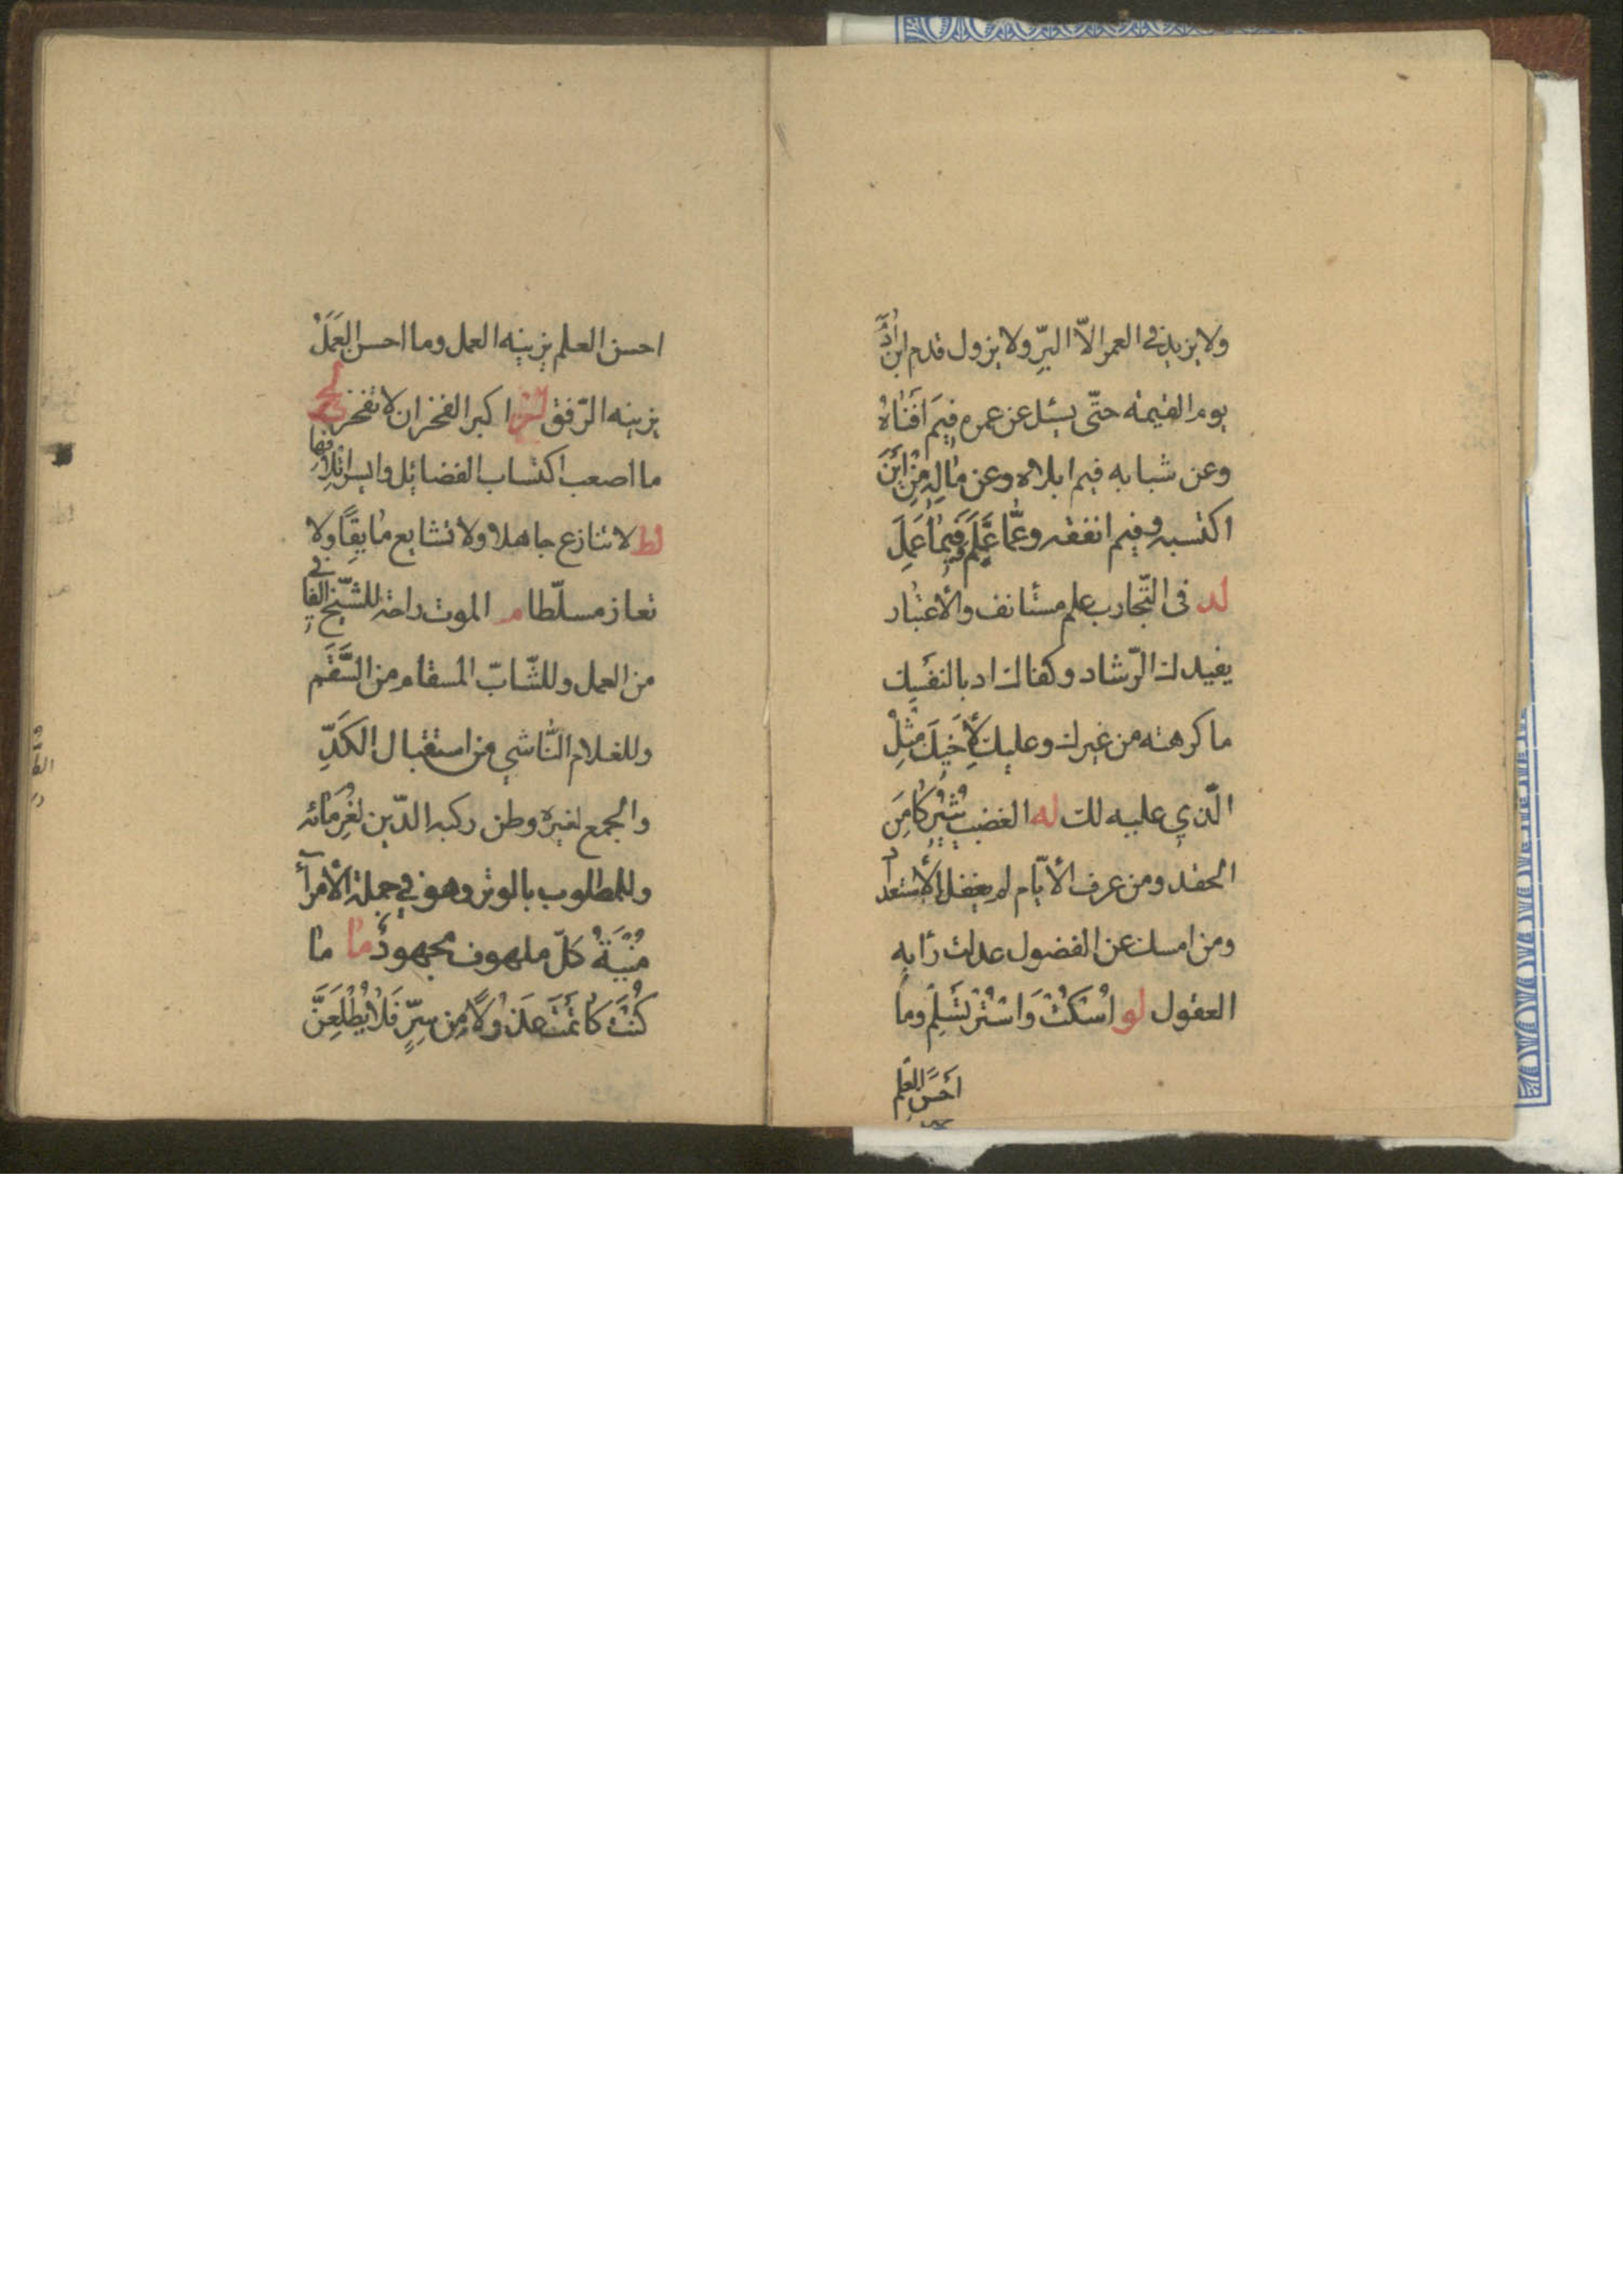 ولا يزيد في العمر الّا البرّ ولا يزول قدم ابن اٰدَمَ
يوم القيمة حتّى يسئل عن عمره فيمَ اَفناهُ
وعن شبابه فيم ابلاه وعن مٰالِهِ مِنْ اَيْنَ
اكتسبه وفيم انفقه وعمّٰا عَلِمَ فيمٰا عَمِلَ
لد فى التّجارب علم مستانف والأعتبٰار
يفيدك الرّشاد وكفاك ادبا لنفسِك
ما كرهته من غيرك وعليك لِأَخيكَ مِثْلُ
الّذي عليه لك له الغضب يُثيرُ كٰامِنَ
الحقد ومن عرف الأيّام لم يغفل الأستعداد
ومن امسك عن الفضول عدلت رٰايه
العقول لو اُسْكُتْ وَاسْتُرْ تَسْلِم وما
أحْسَنَ العلم
احسن العلم يزينه العمل وما احسن العَمَلَ
يزينه الرّفق لز اكبر الفخر ان لا تفخر لح
ما اصعب اكتساب الفضائل وايسر اتلافها
لط لا تنازع جاهلا ولا تشايع مٰايقًا ولا
تعاز مسلّطا م الموت راحة للشّيخ الفاني
من العمل وللشّابّ المسقام من السَّقَم
وللغلام النّاشي من استقبال الكَدِّ
والجمع لغيره وطن ركبه الدّين لغُرَمٰائه
وللمطلوب بالوتر وهو في جملة الأمرآء
مُنْيَةُ كلّ ملهوف مجهود مٰا مٰا
كُنْتَ كٰاتمَتَ عدَوّك مِن سِرٍّ فَلٰا يُطْلِعَنَّ